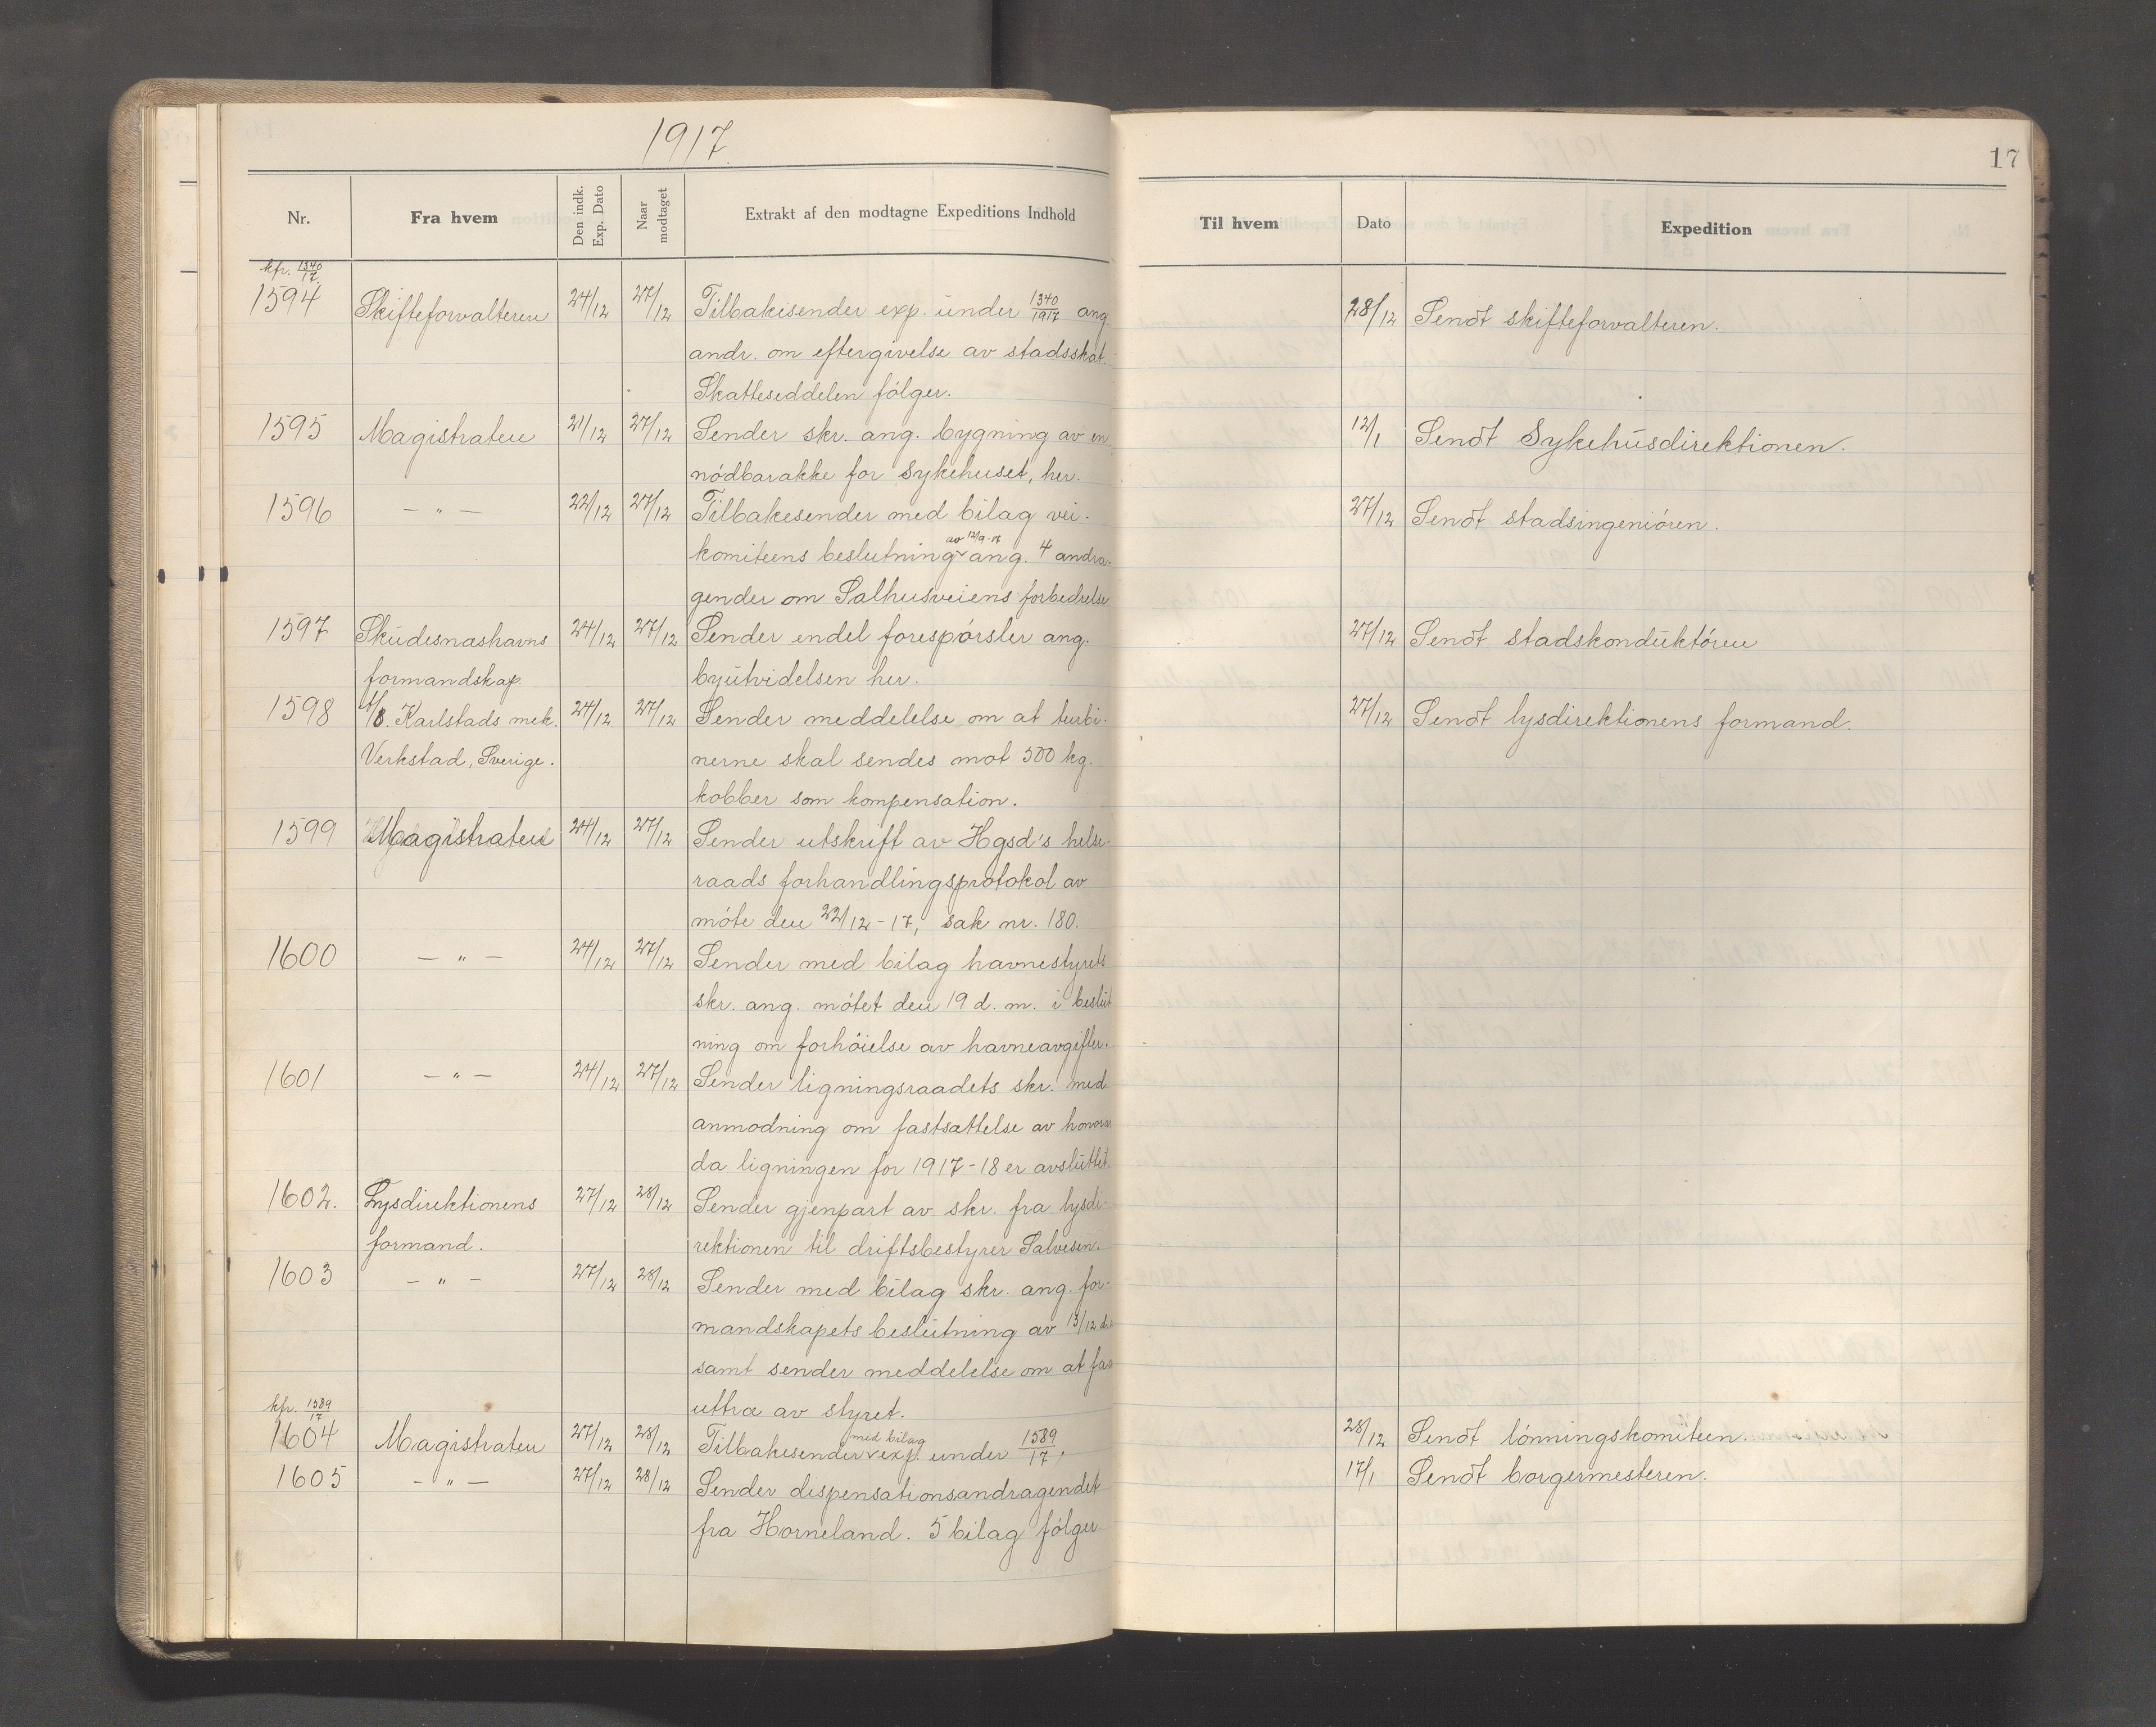 1917.
17
Nr.
Fra hvem
Den indk. Exp. Dato
Naar modtaget
Extrakt af den modtagne Expeditions Indhold
Til hvem
Dato
Expedition
kfr. 1340/17.
1594 Skifteforvalteren 24/12 27/12 Tilbakesender exp. under 1340/1917 ang. 28/12 Sendt skifteforvalteren.
andr. om eftergivelse av stadsskat.
Skatteseddelen følger.
1595 Magistraten 21/12 27/12 Sender skr. ang. bygning av en 12/1 Sendt Sykehusdirektionen.
nødbarakke for Sykehuset, her.
1596 — " — 22/12 27/12 Tilbakesender med bilag vei- 27/12 Sendt stadsingeniøren.
komiteens beslutning av 12/9-17 ang. 4 andra-
gender om Salhusveiens forbedrelse
1597 Skudesnæshavns 24/12 27/12 Sender endel forespørsler ang. 27/12 Sendt stadskonduktøren
formandskap. byutvidelsen her.
1598 A/B. Karlstads mek. 24/12 27/12 Sender meddelelse om at turbi- 27/12 Sendt lysdirektionens formand.
Verkstad, Sverige. nerne skal sendes mot 500 kg.
kobber som kompensation.
1599 Magistraten 24/12 27/12 Sender utskrift av Hgsd's helse-
raads forhandlingsprotokol av
møte den 22/12-17, sak nr. 180.
1600 — " — 24/12 27/12 Sender med bilag havnestyrets
skr. ang. møtet den 19 d. m. i beslut
ning om forhøielse av havneavgifter.
1601 — " — 24/12 27/12 Sender ligningsraadets skr. med
anmodning om fastsættelse av honorar
da ligningen for 1917-18 er avsluttet.
1602. Lysdirektionens 27/12 28/12 Sender gjenpart av skr. fra lysdi-
formand. rektionen til driftsbestyrer Salvesen.
1603 — " — 27/12 28/12 Sender med bilag skr. ang. for-
mandskapets beslutning av 13/12 ds
samt sender meddelelse om at faa
uttræ av styret.
kfr. 1589/17
1604 Magistraten 27/12 28/12 Tilbakesender med bilag exp. under 1589/17. 28/12 Sendt lønningskomiteen.
1605 — " — 27/12 28/12 Sender dispensationsandragendet 17/1 Sendt borgermesteren.
fra Horneland. 5 bilag følger.